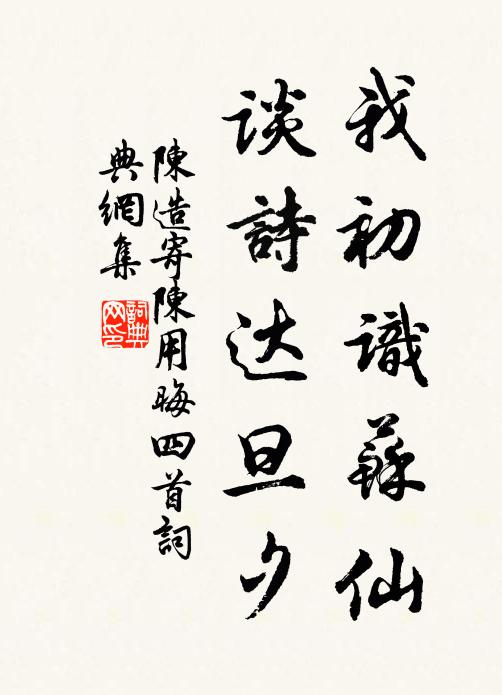 我初識蘇仙
谈詩达旦夕
陳造寄陳用晦四首詞
典網集
詞典网印